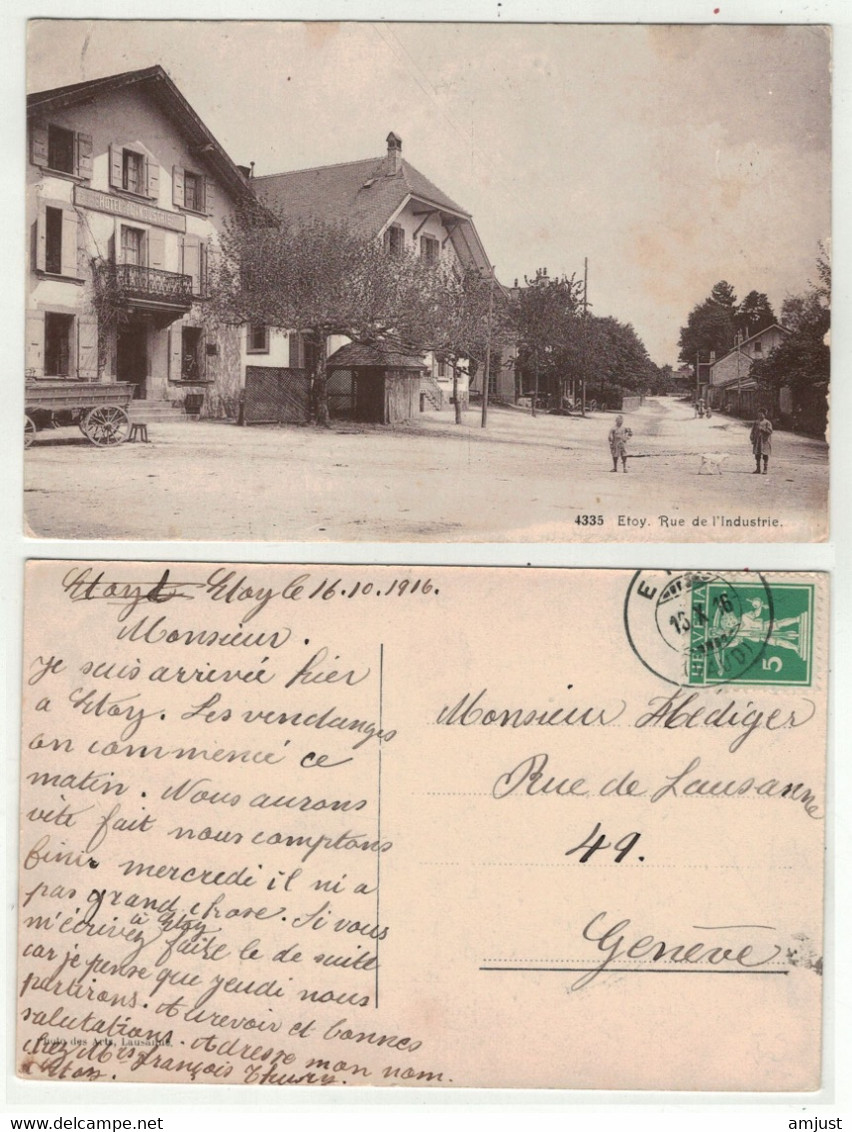 HÔTEL
4335 Etoy. Rue de l'Industrie.
Etoy le 16.10.1916.
Monsieur.
Je suis arrivée hier
a Etoy. Les vendanges
on commencé ce
matin. Nous aurons
vite fait nous comptons
finir mercredi il ni a
pas grand chose. Si vous
m'écrivez à Etoy faite le de suite
car je pense que jeudi nous
partirons. Aurevoir et bonnes
salutations. Adresse mon nom.
chez Mr François Thury.
Etoy.
Photo des Arts, Lausanne.
16.X.16
HELVETIA
5
Monsieur Hediger
Rue de Lausanne
49.
Genève
delcampe.net
amjust